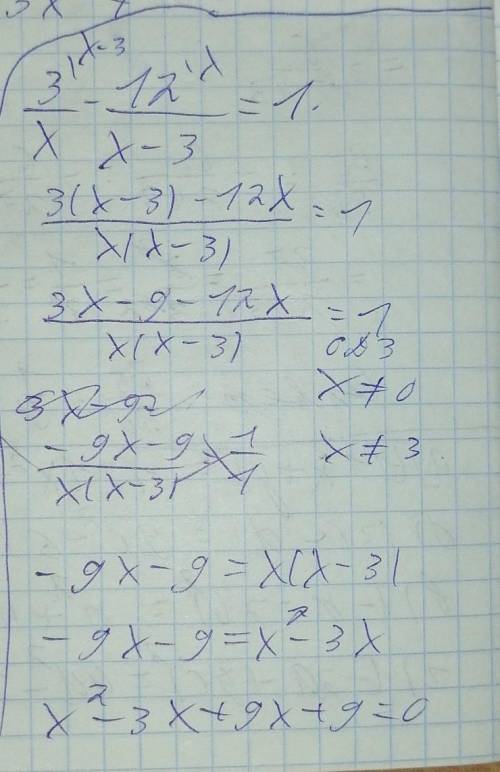 3^{\x-3}/x - 12^{\x}/(x-3) = 1.
(3(x-3)-12x)/(x(x-3)) = 1
(3x-9-12x)/(x(x-3)) = 1
ОДЗ
x≠0
(-9x-9)/(x(x-3)) = 1/1
x≠3
-9x-9=x(x-3)
-9x-9=x²-3x
x²-3x+9x+9=0